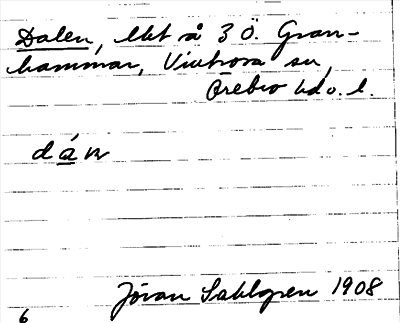 Dalen, lht å 3 Ö. Gran-
hammar, Vintrosa sn,
Örebro hd o. l.
dán
Jöran Sahlgren 1908
6